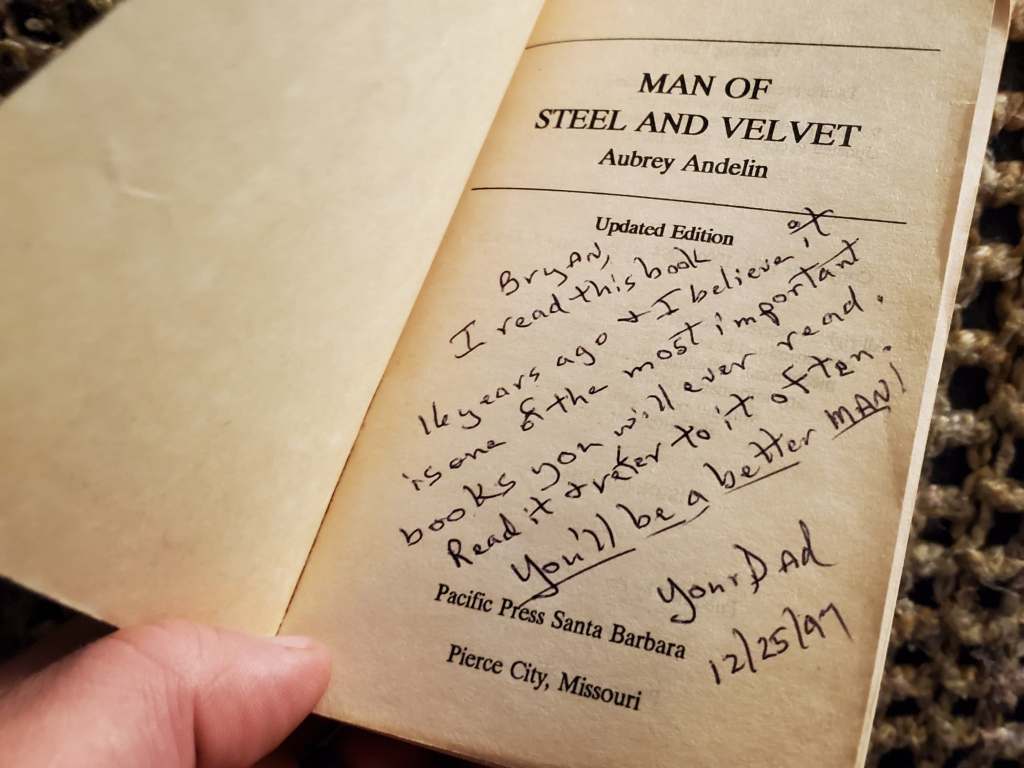 MAN OF
STEEL AND VELVET
Aubrey Andelin
Updated Edition
BryAN,
I read this book
16 years ago & I believe it
is one of the most important
books you will ever read.
Read it & refer to it often.
You'll be a better MAN!
Your DAd
12/25/97
Pacific Press Santa Barbara
Pierce City, Missouri